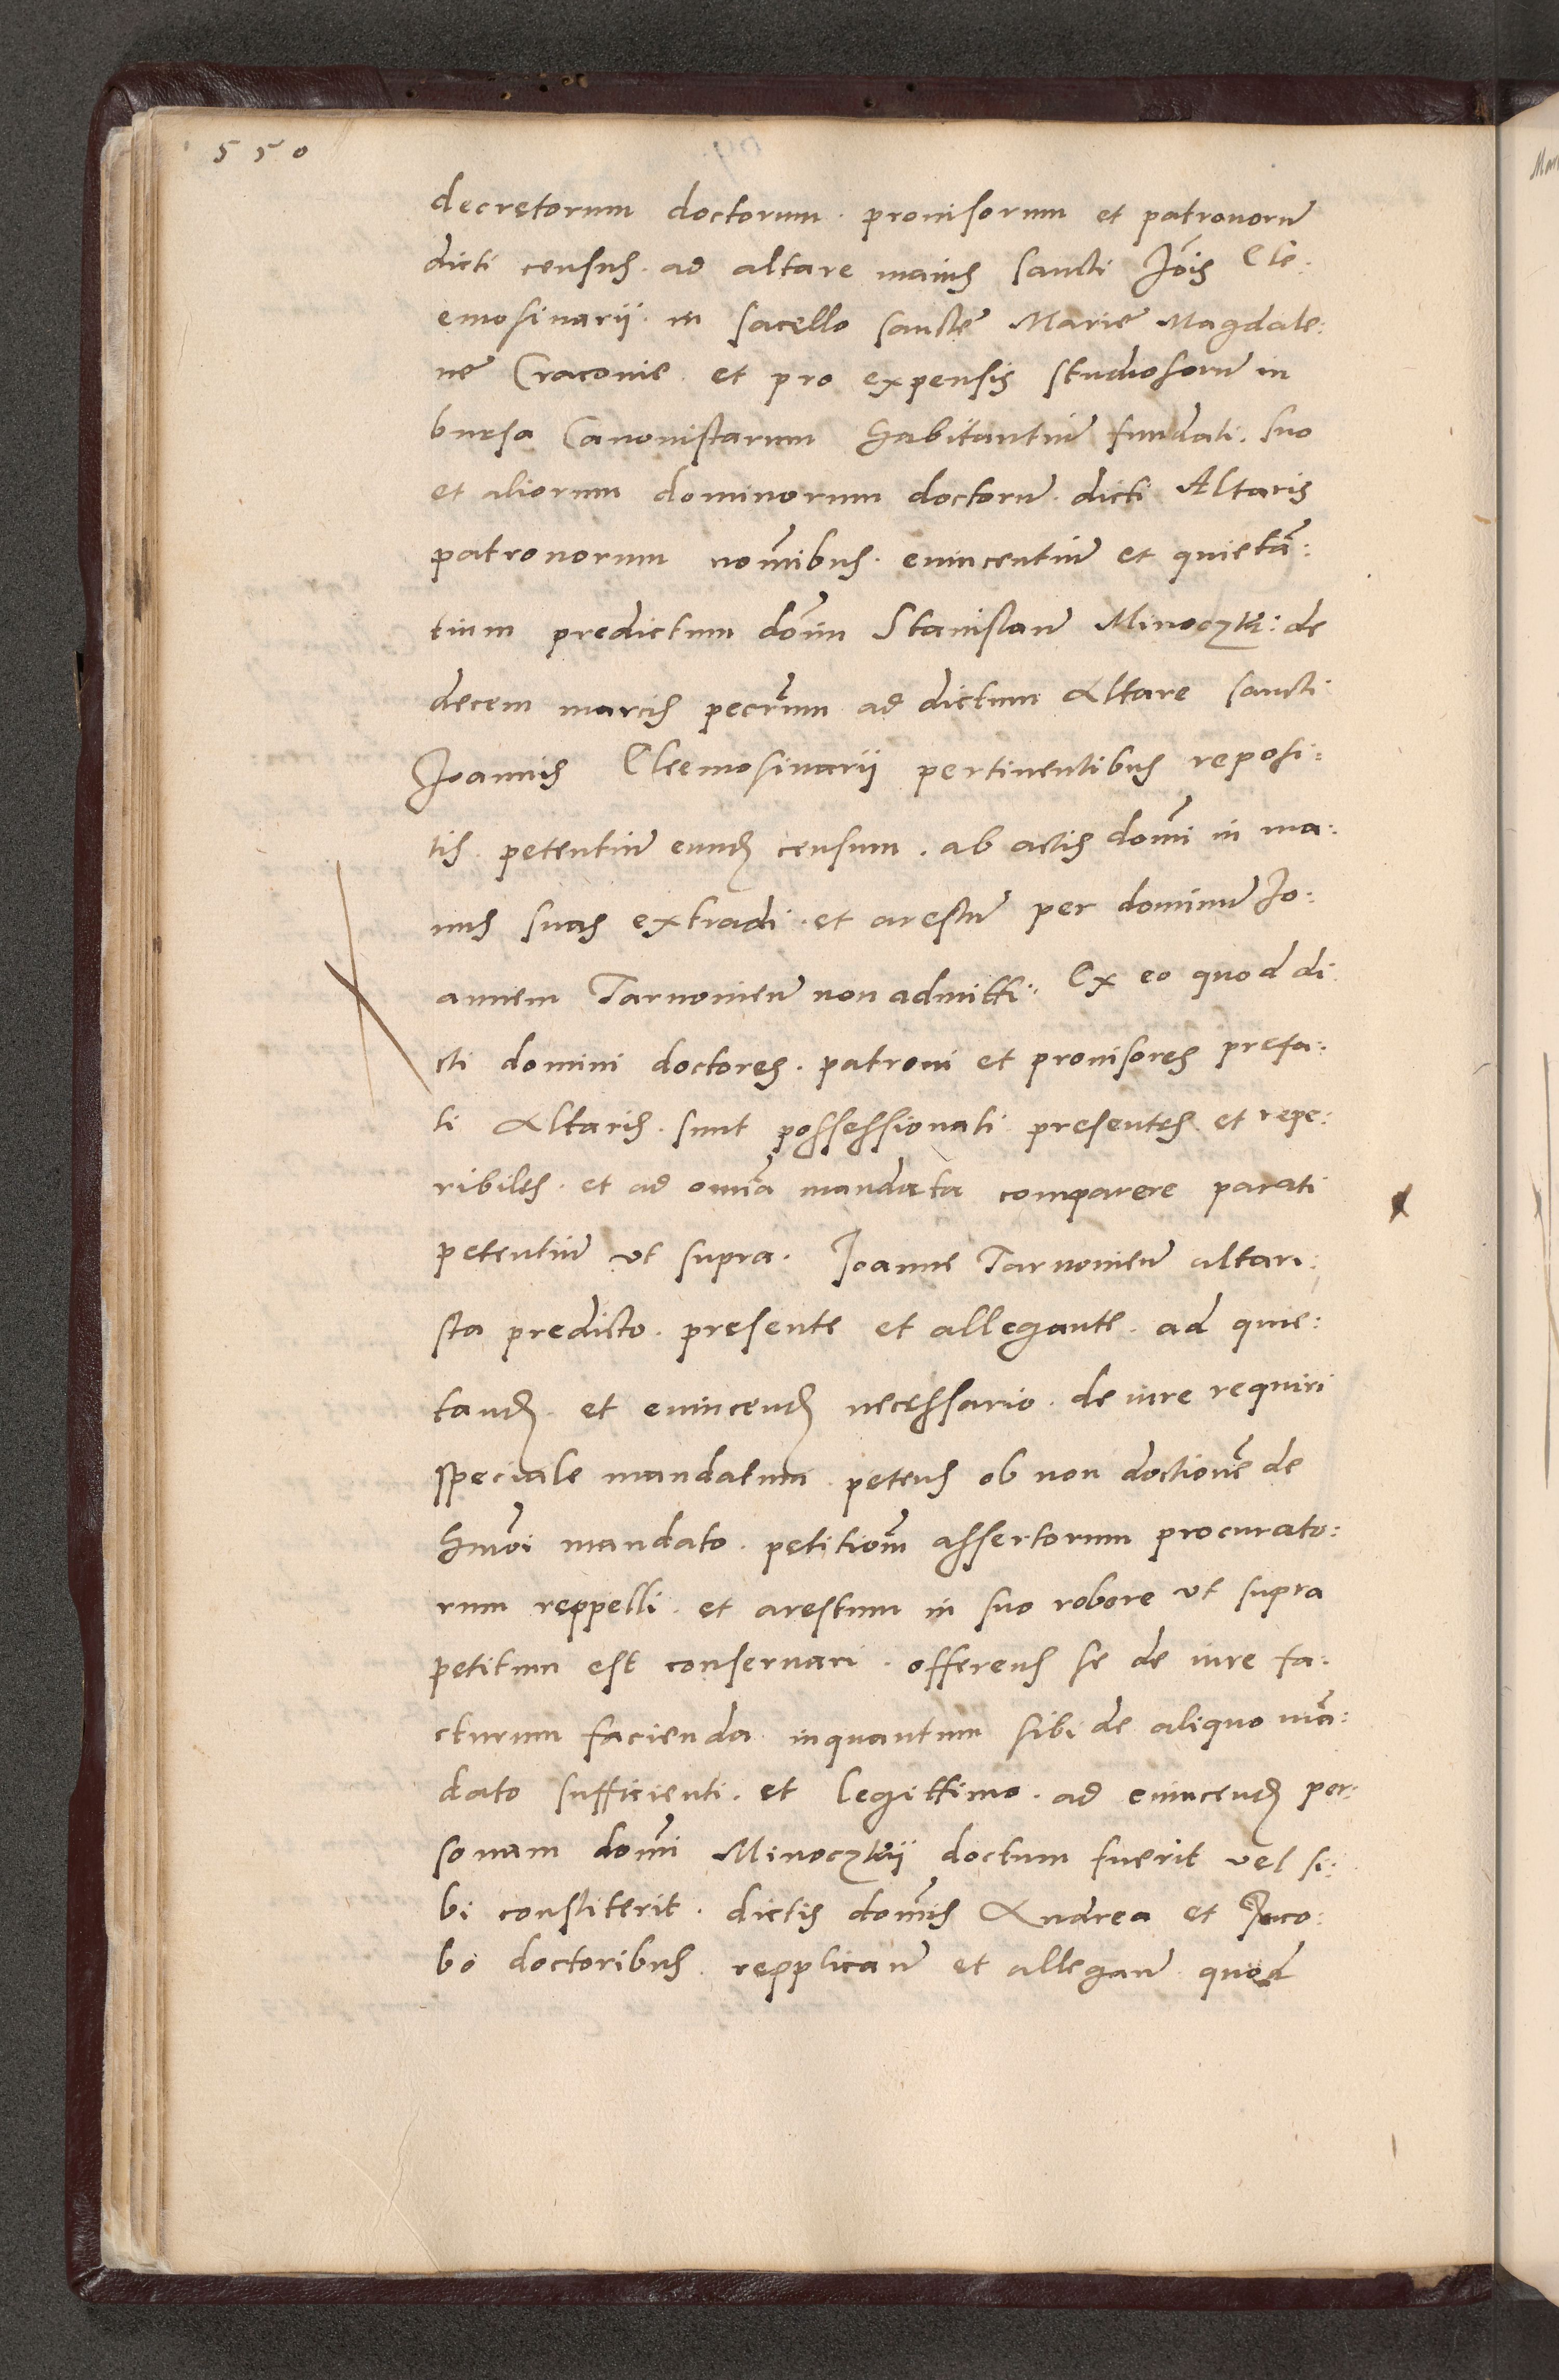 550
decretorum doctorum. prouisorum et patronorũ
dicti census. ad altare maius sancti Jõis Ele:
emosinarii. in sacello sanctę Marię Magdale:
nę Cracouie. et pro expensis studiosorũ in
bursa Canonistarum habitantiũ fundati. suo
et aliorum dominorum doctorũ. dicti Altaris
patronorum noĩnibus. euincentiũ et quietã:
tium predictum doĩm Stanislaũ Minoczki: de
decem marcis pecũium ad dictum Altare sancti
Joannis Eleemosinarii pertinentibus reposi:
tis. petentiũ eund̃ censum. ab actis doĩni in ma:
nus suas extradi. et arestũ per dominũ Jo:
annem Tarnouieñ non admitti. Ex eo quod di
cti domini doctores. patroni et prouisores prefa:
ti Altaris. sunt possessionati presentes. et repe:
ribiles. et ad omĩa mandata comparere parati
petentiũ ut supra. Joanne Tarnouieñ altari:
sta predicto. presente et allegante. ad quie:
tand̃. et euincend̃ necessario. de iure requiri
speciale mandatum. petens ob non doctionẽ de
hmõi mandato. petitioñm assertorum procurato:
rum reppelli. et arestum in suo robore ut supra
petitum est conseruari. offerens se de iure fa:
cturum facienda inquantum sibi de aliquo mã:
dato sufficienti. et legittimo. ad euincend̃ per:
sonam doĩni Minoczkii doctum fuerit vel si:
bi constiterit. dictis doĩnis Andrea et Jaco:
bo doctoribus. repplicañ et allegañ quod